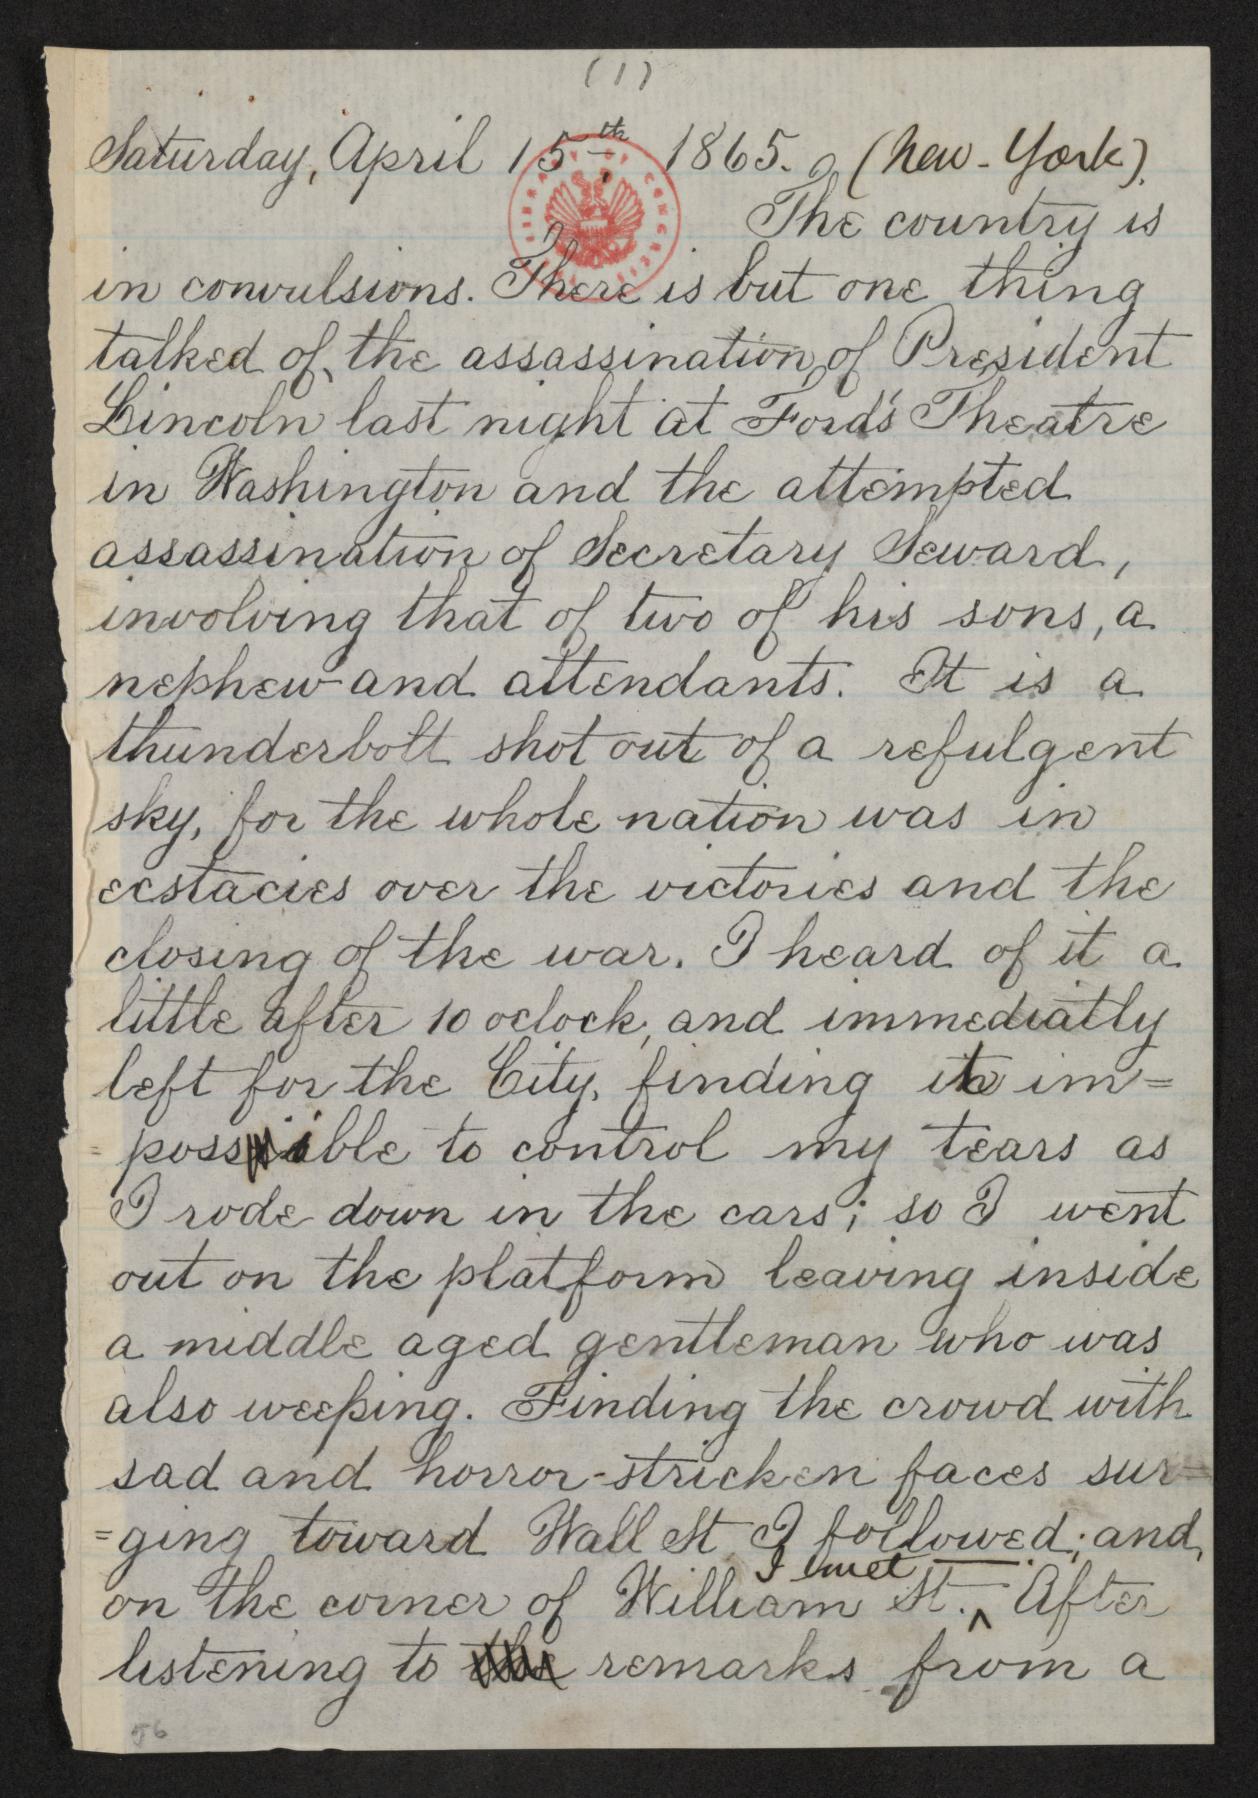 (1)
Saturday, April 15th, 1865. (New-York).
The country is
in convulsions. There is but one thing
talked of, the assassination of President
Lincoln last night at Ford's Theatre
in Washington and the attempted
assassination of Secretary Seward,
involving that of two of his sons, a
nephew and attendants. It is a
thunderbolt shot out of a refulgent
sky, for the whole nation was in
ecstacies over the victories and the
closing of the war. I heard of it a
little after 10 oclock, and immediatly
left for the City, finding it im=
=possible to control my tears as
I rode down in the cars; so I went
out on the platform leaving inside
a middle aged gentleman who was
also weeping. Finding the crowd with
sad and horror-stricken faces sur=
=ging toward Wall St I followed; and,
on the corner of William St. I met ———. After
listening to remarks from a
56